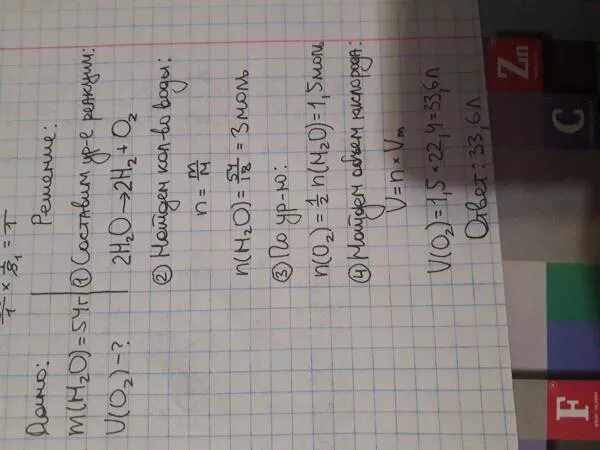 Дано:
m(H₂O)=54г
V(O₂)-?
Решение:
① Составим ур-е реакции:
2H₂O→2H₂+O₂
② Найдем кол-во воды:
n=m/M
n(H₂O)=54/18=3 моль
③ По ур-ю:
n(O₂)=1/2 n(H₂O)=1,5 моль
④ Найдем объем кислорода:
V=n×Vm
V(O₂)=1,5×22,4=33,6л
Ответ: 33,6л
Zn
C
F